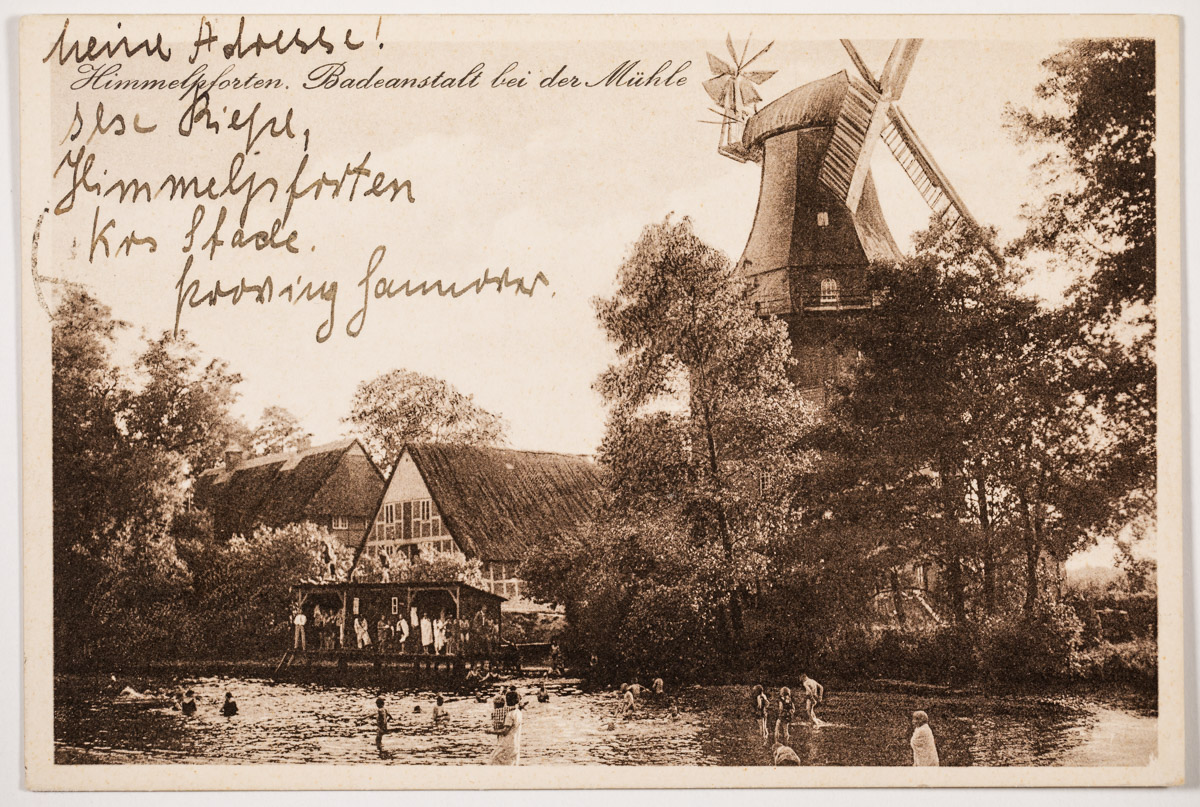 meine Adresse!
Himmelpforten. Badeanstalt bei der Mühle
Ilse
Himmelpforten
Krs Stade.
Provinz Hannover.